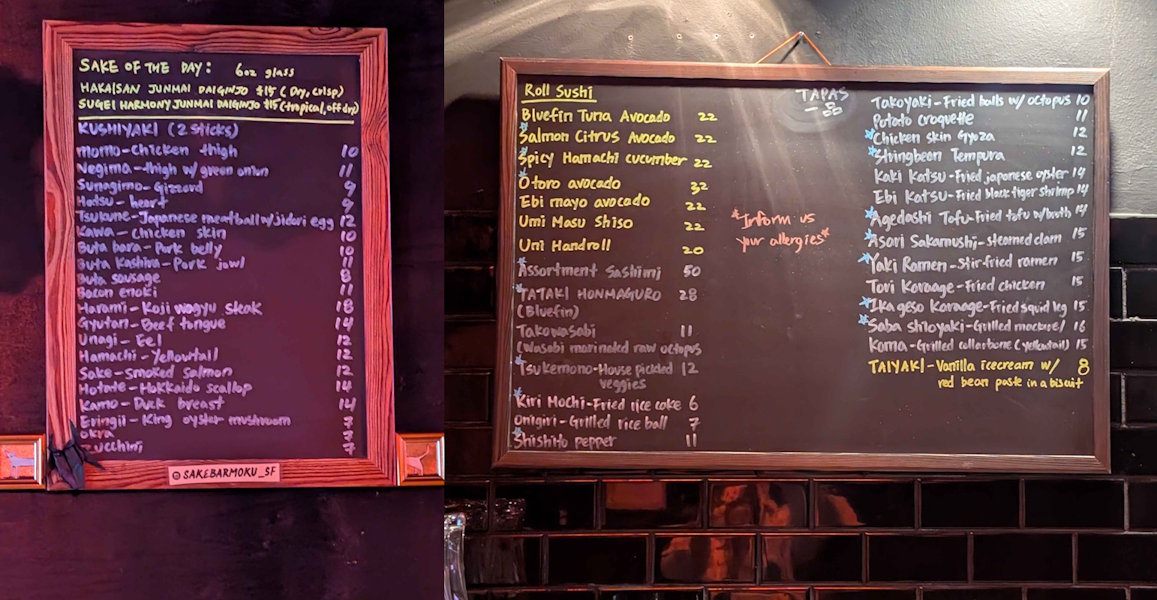 SAKE OF THE DAY: 6oz glass
HAKAISAN JUNMAI DAIGINJO $15 (Dry, crisp)
SUGEI HARMONY JUNMAI DAIGINJO $15 (tropical, off dry)
KUSHIYAKI (2 sticks)
Momo-Chicken thigh 10
Negima-thigh w/ green onion 11
Sunagimo-Gizzard 9
Hatsu-heart 9
Tsukune-Japanese meatball w/Jidori egg 12
Kawa-Chicken skin 10
Buta bara-Pork belly 10
Buta Kashira-Pork jowl 11
Buta sausage 8
Bacon enoki 11
Harami-Koji wagyu steak 18
Gyutan-Beef tongue 14
Unagi-Eel 12
Hamachi-Yellowtail 12
Sake-Smoked Salmon 12
Hotate-Hokkaido scallop 14
Kamo-Duck breast 14
Eringii-King oyster mushroom 7
Okra 7
Zucchini 7
@SAKEBARMOKU_SF
Roll Sushi
Bluefin Tuna Avocado 22
Salmon Citrus Avocado 22
Spicy Hamachi cucumber 22
Otoro avocado 32
Ebi mayo avocado 22
Umi Masu Shiso 22
Uni Handroll 20
Assortment Sashimi 50
TATAKI HONMAGURO 28
(Bluefin)
Takowasabi 11
(Wasabi marinated raw octopus
Tsukemono-House pickled 12
veggies
Kiri Mochi-Fried rice cake 6
Onigiri-Grilled rice ball 7
Shishito pepper 11
TAPAS
一品
*Inform us
your allergies*
Takoyaki-Fried balls w/ octopus 10
Potato croquette 11
Chicken skin Gyoza 12
Stringbean Tempura 12
Kaki Katsu-Fried japanese oyster 14
Ebi Katsu-Fried black tiger shrimp 14
Agedashi Tofu-Fried tofu w/broth 14
Asari Sakamushi-steamed clam 15
Yaki Ramen-Stir-fried ramen 15
Tori Karaage-Fried chicken 15
Ika geso Karaage-Fried squid leg 15
Saba shioyaki-Grilled mackerel 16
Kama-Grilled collarbone (yellowtail) 15
TAIYAKI-Vanilla icecream w/ 8
red bean paste in a biscuit